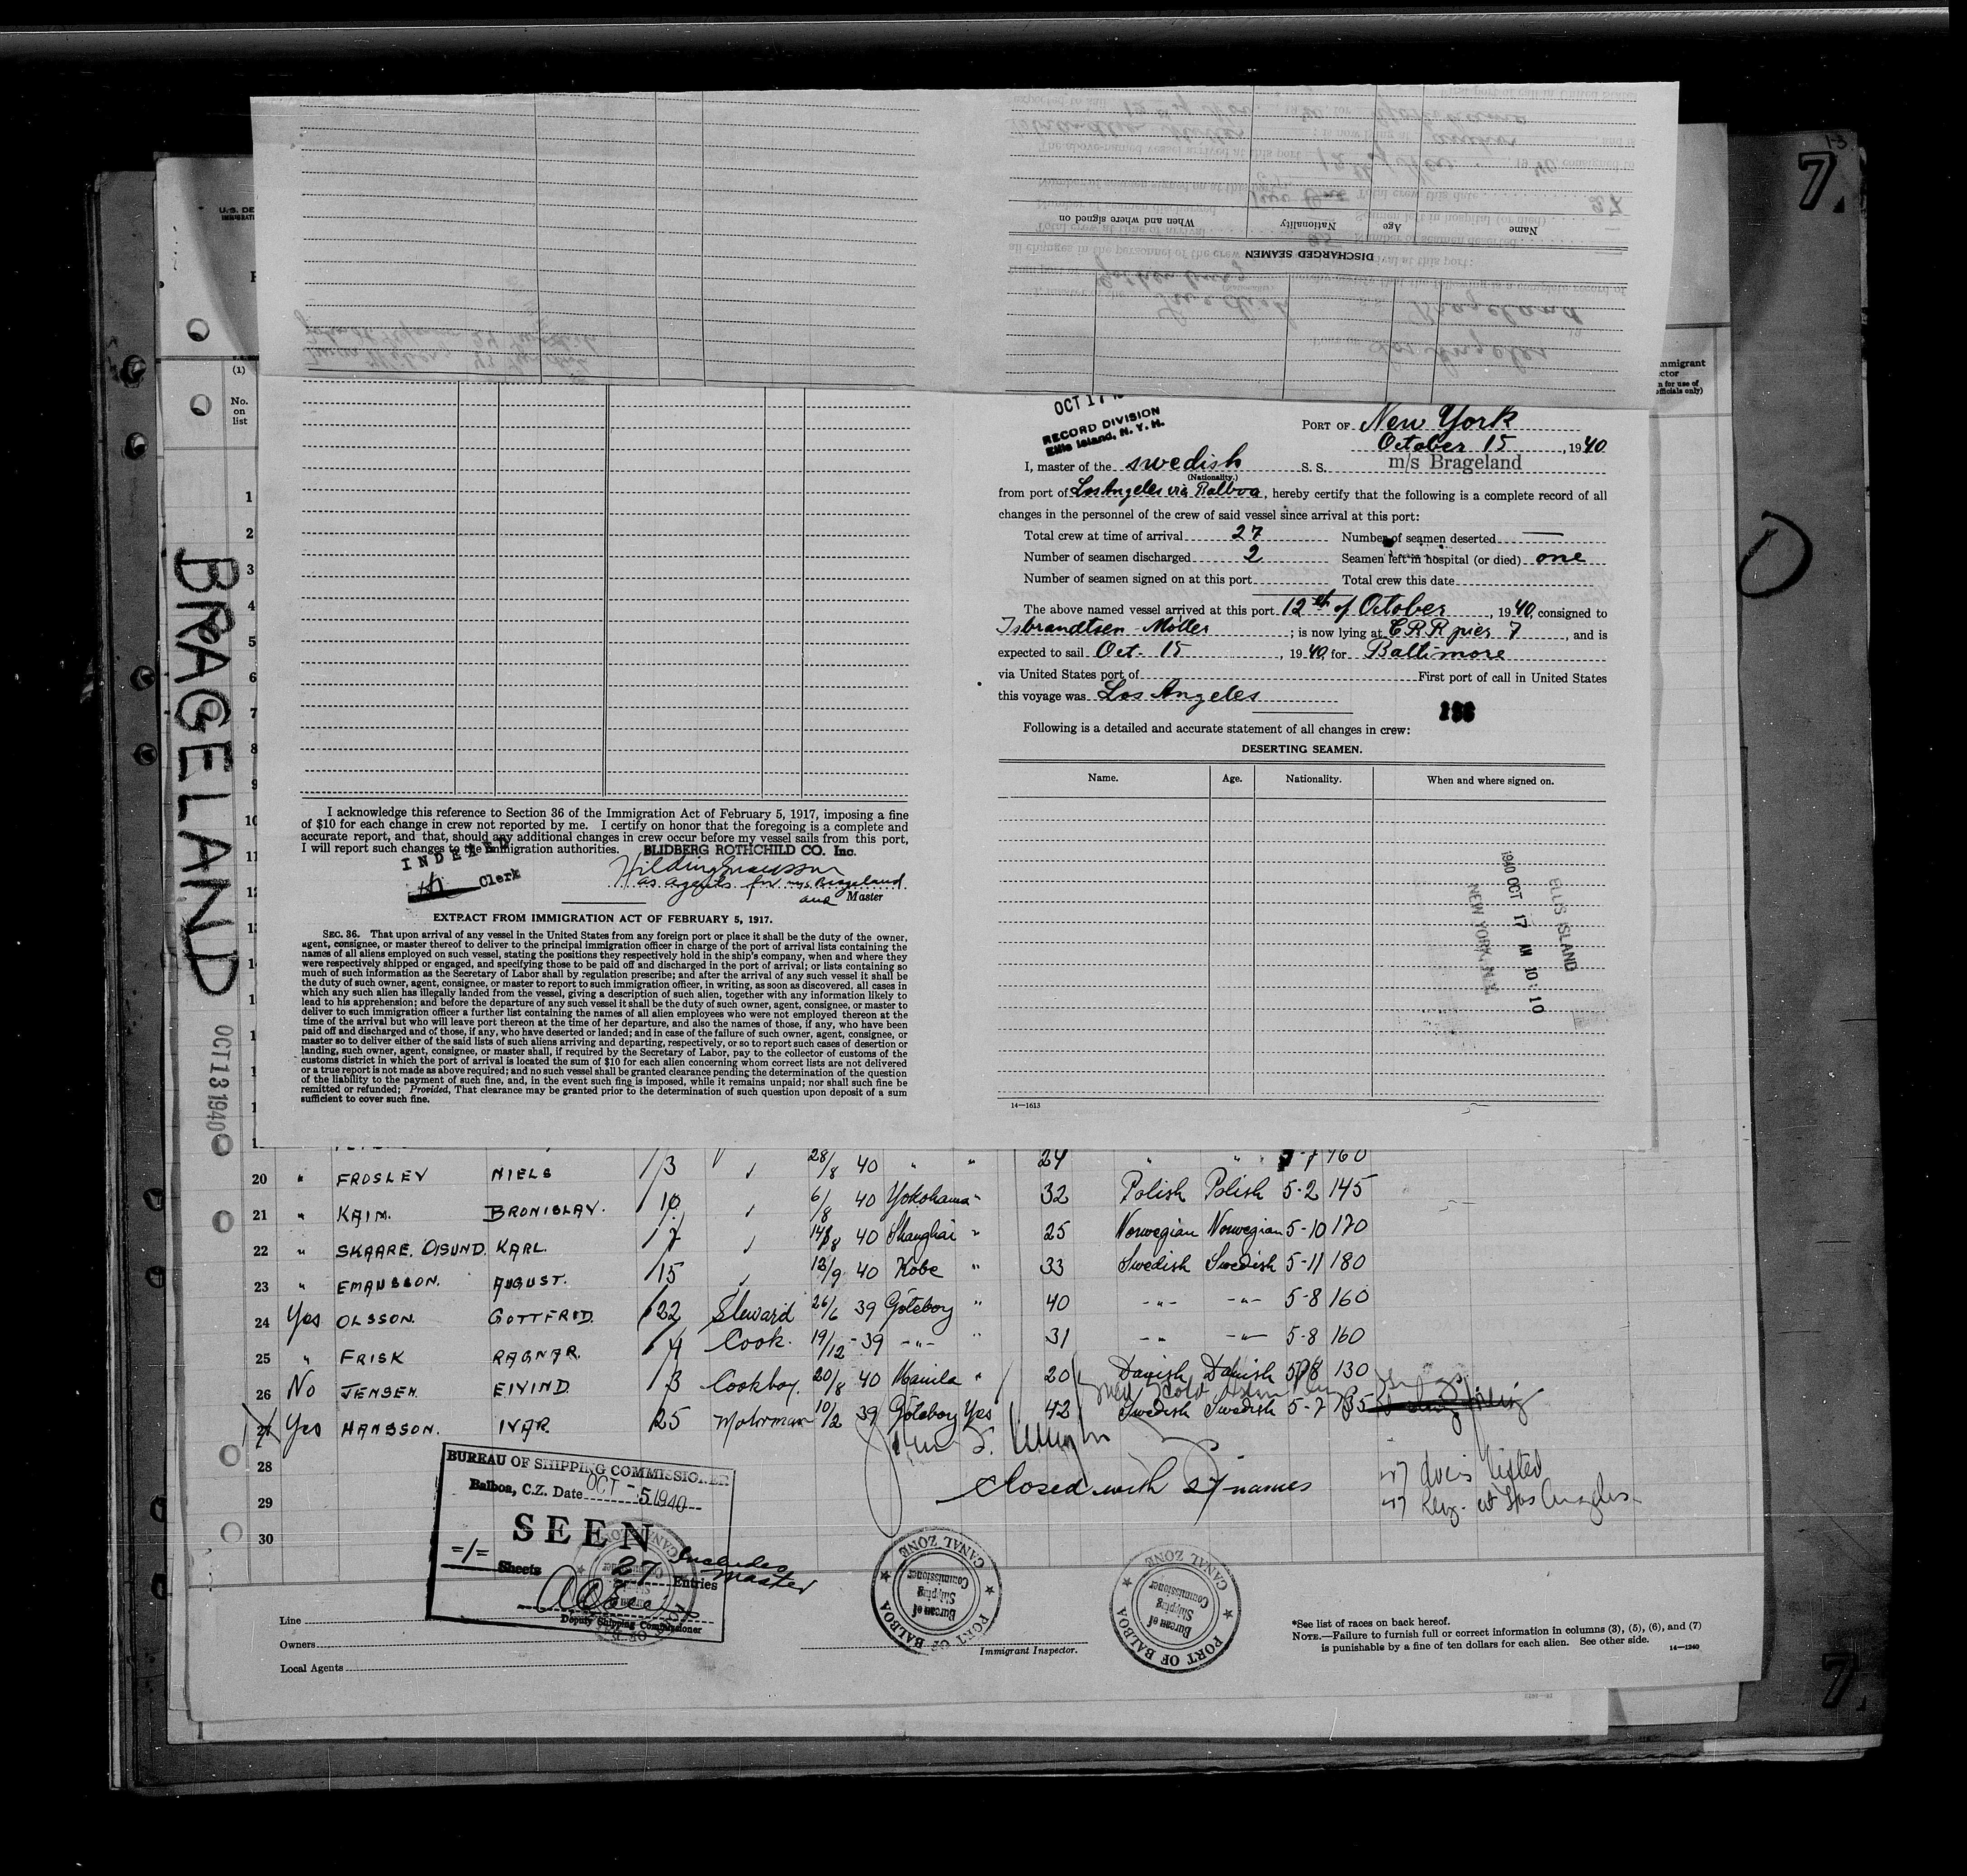 7.
13
U.S. DE
IMMIGRATI
(1)
No.
on
list
mmigrant
ctor
n for use of
officials only)
DISCHARGED SEAMEN
Name
Age
Nationality
When and where signed on
Los Angeles
Brageland
Swedish
27
BRAGELAND
OCT 13 1940
1
2
3
4
5
6
7
8
9
10
11
12
I acknowledge this reference to Section 36 of the Immigration Act of February 5, 1917, imposing a fine
of $10 for each change in crew not reported by me. I certify on honor that the foregoing is a complete and
accurate report, and that, should any additional changes in crew occur before my vessel sails from this port,
I will report such changes to the immigration authorities.
BLIDBERG ROTHCHILD CO. Inc.
INDEXED
Clerk
as agents for m/s Brageland
and Master
EXTRACT FROM IMMIGRATION ACT OF FEBRUARY 5, 1917.
SEC. 36. That upon arrival of any vessel in the United States from any foreign port or place it shall be the duty of the owner,
agent, consignee, or master thereof to deliver to the principal immigration officer in charge of the port of arrival lists containing the
names of all aliens employed on such vessel, stating the positions they respectively hold in the ship's company, when and where they
were respectively shipped or engaged, and specifying those to be paid off and discharged in the port of arrival; or lists containing so
much of such information as the Secretary of Labor shall by regulation prescribe; and after the arrival of any such vessel it shall be
the duty of such owner, agent, consignee, or master to report to such immigration officer, in writing, as soon as discovered, all cases in
which any such alien has illegally landed from the vessel, giving a description of such alien, together with any information likely to
lead to his apprehension; and before the departure of any such vessel it shall be the duty of such owner, agent, consignee, or master to
deliver to such immigration officer a further list containing the names of all alien employees who were not employed thereon at the
time of the arrival but who will leave port thereon at the time of her departure, and also the names of those, if any, who have been
paid off and discharged and of those, if any, who have deserted or landed; and in case of the failure of such owner, agent, consignee, or
master so to deliver either of the said lists of such aliens arriving and departing, respectively, or so to report such cases of desertion or
landing, such owner, agent, consignee, or master shall, if required by the Secretary of Labor, pay to the collector of customs of the
customs district in which the port of arrival is located the sum of $10 for each alien concerning whom correct lists are not delivered
or a true report is not made as above required; and no such vessel shall be granted clearance pending the determination of the question
of the liability to the payment of such fine, and, in the event such fine is imposed, while it remains unpaid; nor shall such fine be
remitted or refunded; Provided, That clearance may be granted prior to the determination of such question upon deposit of a sum
sufficient to cover such fine.
OCT 17
RECORD DIVISION
Ellis Island, N. Y. H.
PORT OF New York
October 15, 1940
I, master of the swedish S. S. m/s Brageland
(Nationality.)
from port of Los Angeles via Balboa, hereby certify that the following is a complete record of all
changes in the personnel of the crew of said vessel since arrival at this port:
Total crew at time of arrival 27 Number of seamen deserted —
Number of seamen discharged 2 Seamen left in hospital (or died) one
Number of seamen signed on at this port Total crew this date
The above named vessel arrived at this port 12th of October, 1940, consigned to
Isbrandtsen Moller ; is now lying at CRR pier 7, and is
expected to sail Oct. 15, 1940, for Baltimore
via United States port of First port of call in United States
this voyage was Los Angeles
Following is a detailed and accurate statement of all changes in crew:
DESERTING SEAMEN.
Name. Age. Nationality. When and where signed on.
ELLIS ISLAND
1940 OCT 17 AM 10:10
NEW YORK, N.Y.
14—1613
20 " FROSLEV NIELS 1/3 28/8 40 " " 24 " " 160
21 " KAIM. BRONISLAV. 10 6/8 40 Yokohama " 32 Polish Polish 5-2 145
22 " SKAARE. OISUND. KARL. 7 14/8 40 Shanghai " 25 Norwegian Norwegian 5-10 170
23 " EMANSSON. AUGUST. 15 13/9 40 Kobe " 33 Swedish Swedish 5-11 180
24 Yes OLSSON. GOTTFRID. 22 Steward 26/6 39 Göteborg " 40 -"- -"- 5-8 160
25 " FRISK RAGNAR. 4 Cook. 19/12-39 -"- " 31 -"- -"- 5-8 160
26 No JENSEN. EIVIND. 3 Cookboy. 20/8 40 Manila " 20 Danish Danish 5-8 130
27 Yes HANSSON. IVAR. 25 Motorman 10/2 39 Göteborg Yes 42 Swedish Swedish 5-7
28
29
30
closed with 27 names
27 docs listed
27 Reg. at Los Angeles
BUREAU OF SHIPPING COMMISSIONER
Balboa, C.Z. Date OCT - 5 1940
SEEN
=1= Sheets
27 Entries
Includes Master
Deputy Shipping Commissioner
PORT OF BALBOA
CANAL ZONE
Bureau of
Shipping
Commissioner
PORT OF BALBOA
CANAL ZONE
Bureau of
Shipping
Commissioner
Line
Owners
Local Agents
Immigrant Inspector.
*See list of races on back hereof.
NOTE.—Failure to furnish full or correct information in columns (3), (5), (6), and (7)
is punishable by a fine of ten dollars for each alien. See other side.
14—1240
7.